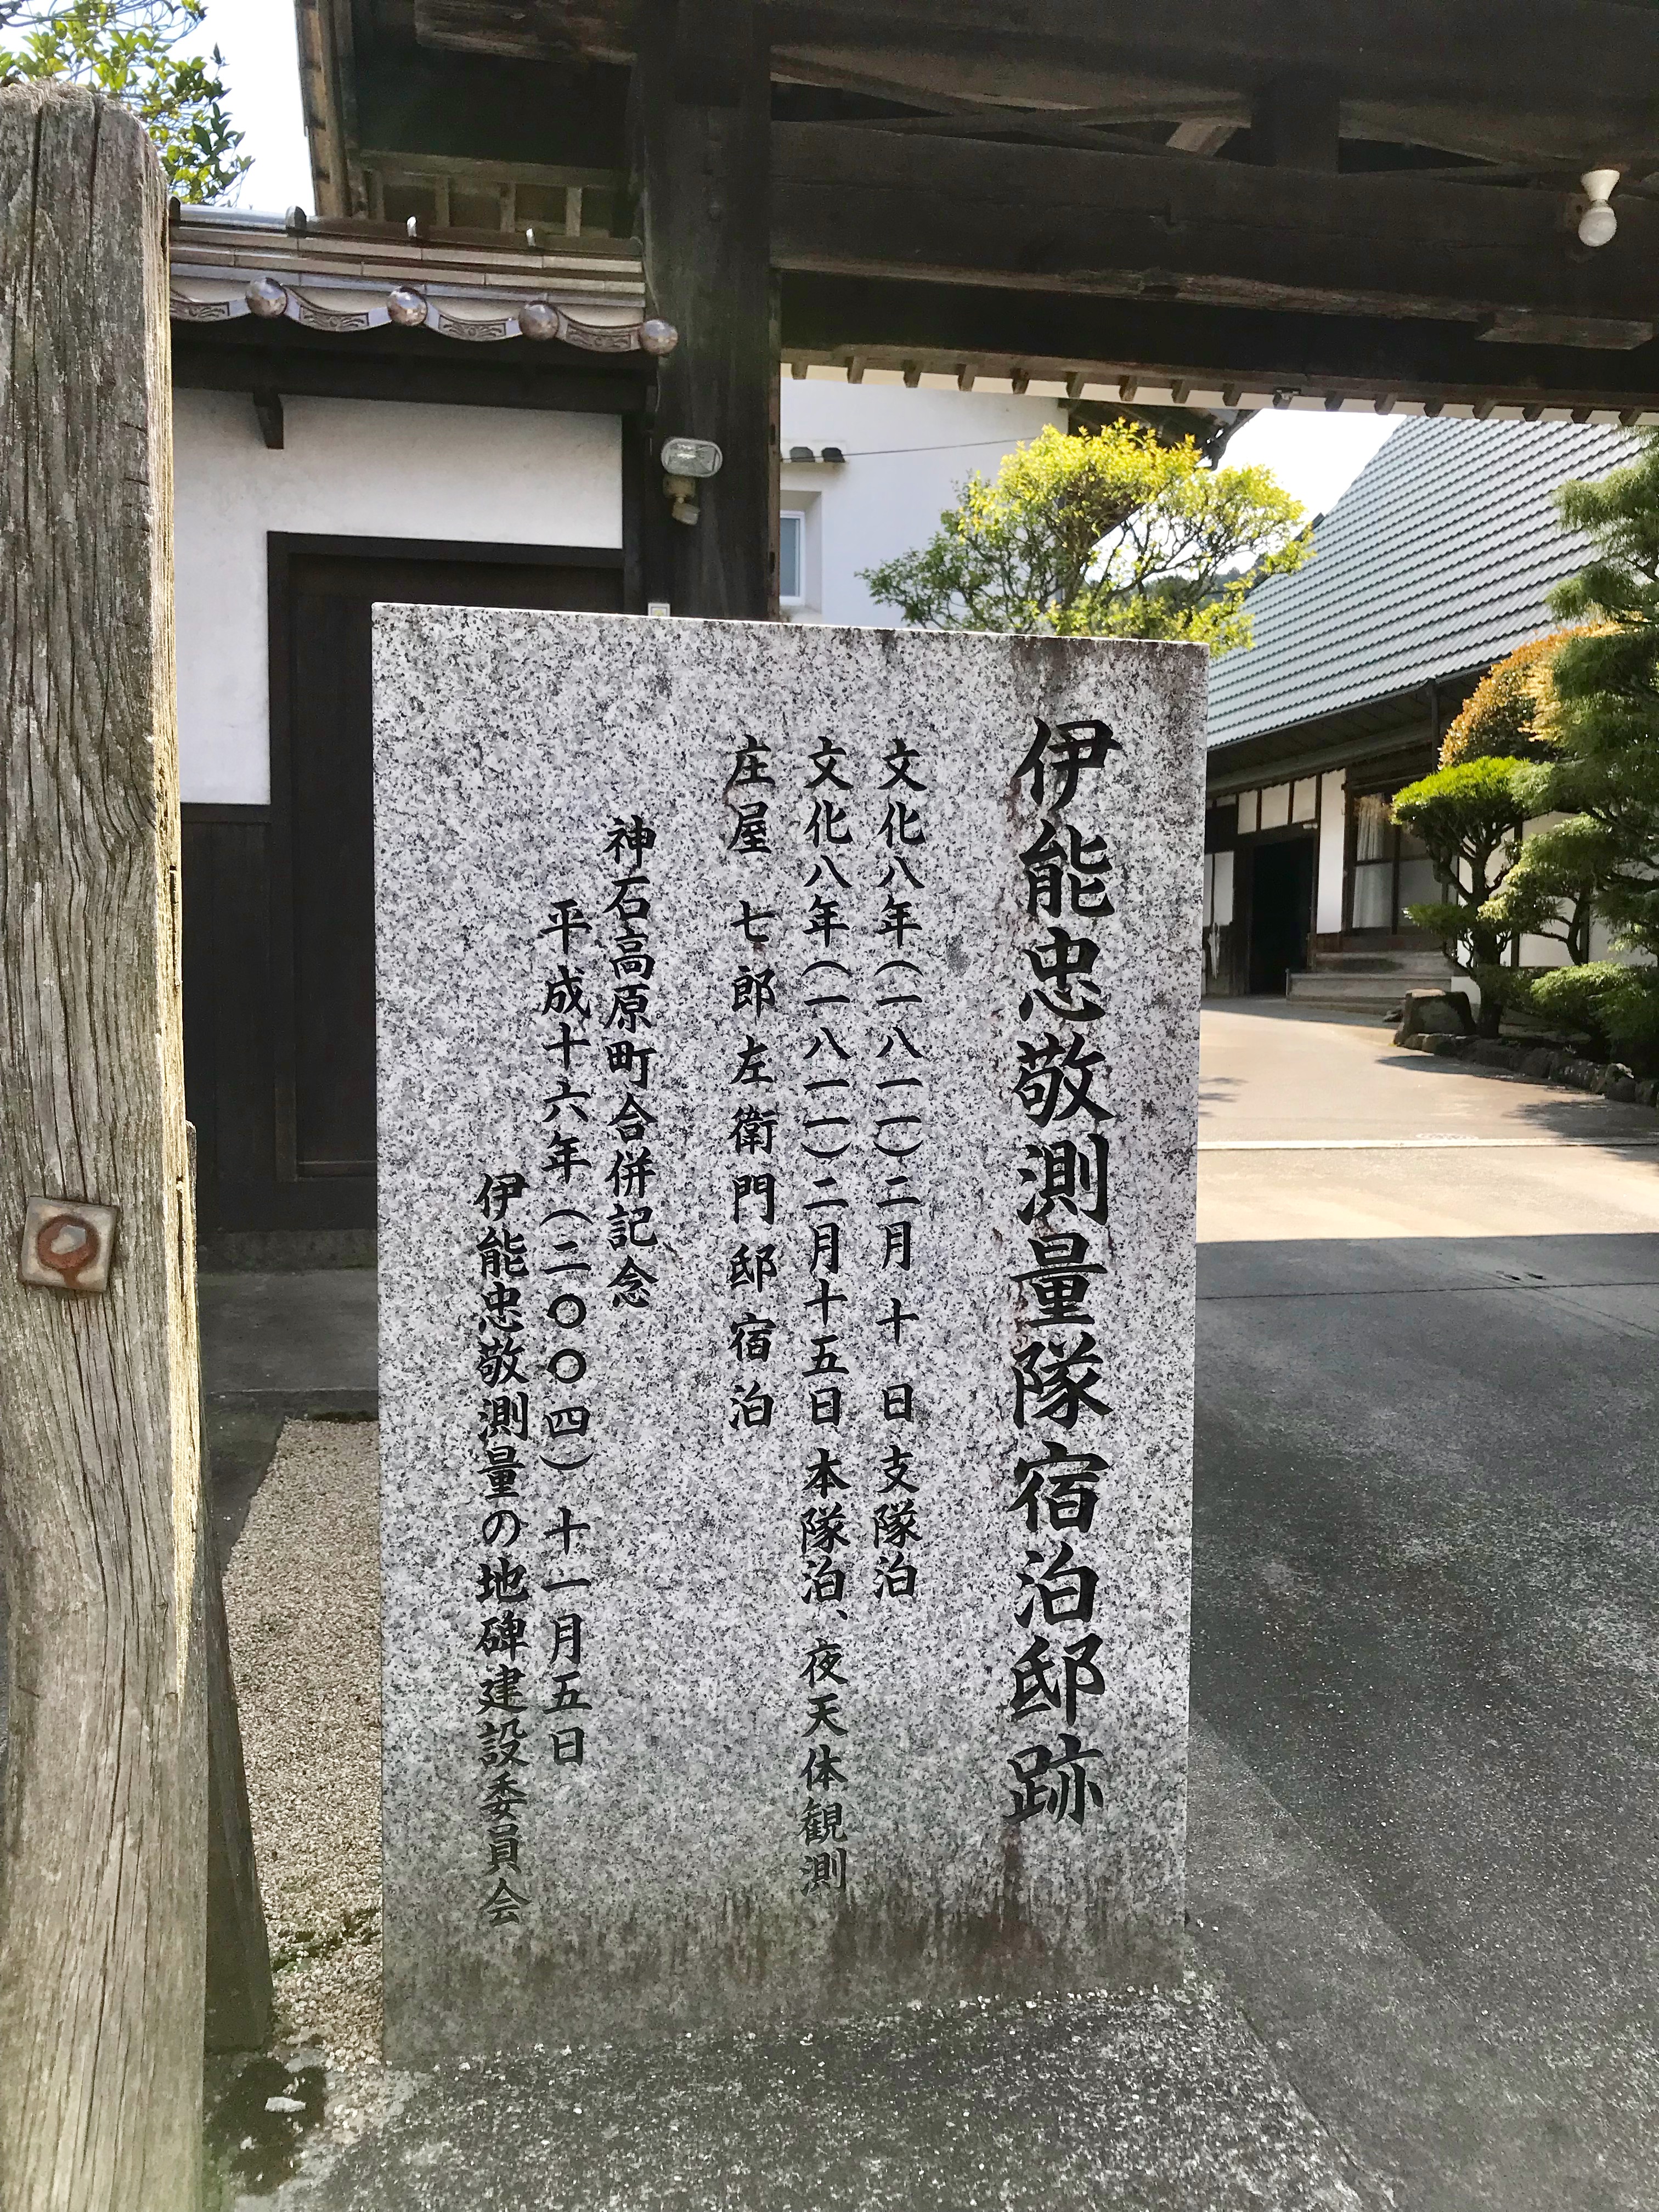 伊能忠敬測量隊宿泊邸跡
文化八年(一八一一)二月 十 日 支隊泊
文化八年(一八一一)二月十五日 本隊泊、夜天体観測
庄屋 七郎左衛門邸宿泊
神石高原町合併記念
平成十六年(二〇〇四)十一月五日
伊能忠敬測量の地碑建設委員会